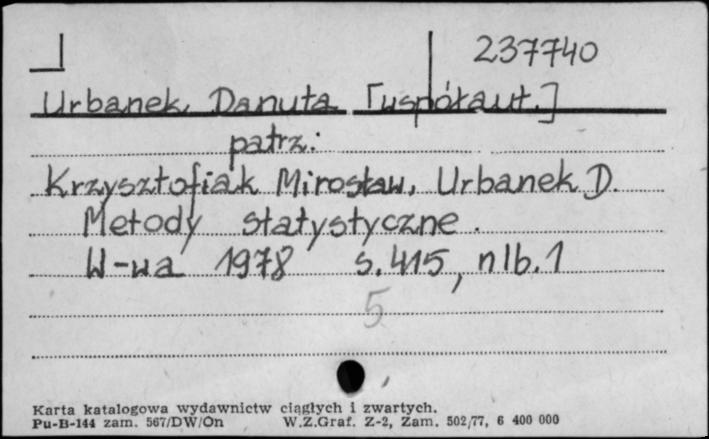 237740
Urbanek Danuta [współaut.]
patrz:
Krzysztofiak Mirosław, Urbanek D.
Metody statystyczne.
W-wa 1978 s. 415, nlb. 1
5
Karta katalogowa wydawnictw ciągłych i zwartych.
Pu-B-144 zam. 567/DW/On W.Z.Graf. Z-2, Zam. 502/77, 6 400 000